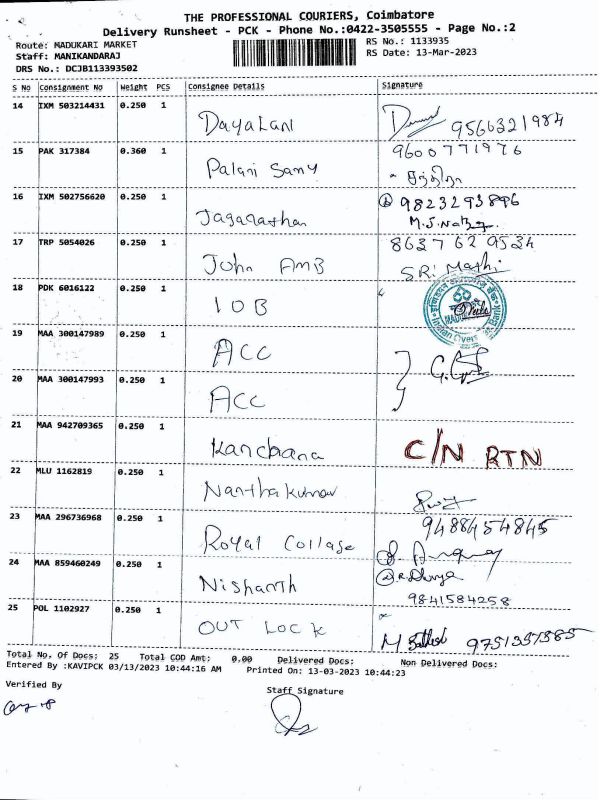 THE PROFESSIONAL COURIERS, Coimbatore
Delivery Runsheet - PCK - Phone No.:0422-3505555 - Page No.:2
Route: MADUKARI MARKET
RS No.: 1133935
Staff: MANIKANDARAJ
RS Date: 13-Mar-2023
DRS No.: DCJB113393502
S No Consignment No Weight PCS Consignee Details Signature
14 IXM 503214431 0.250 1 Dayalani 9566321984
15 PAK 317384 0.360 1 Palani Samy 9600771976
16 IXM 502756620 0.250 1 Jaganathan 9823293896
17 TRP 5054026 0.250 1 John AMB 8637629534
SRi
18 PDK 6016122 0.250 1 IOB
19 MAA 300147989 0.250 1 ACC
20 MAA 300147993 0.250 1 ACC
21 MAA 942709365 0.250 1 Kanchana C/N RTN
22 MLU 1162819 0.250 1 Nanthakumar
23 MAA 296736968 0.250 1 Royal Collage 9488454845
24 MAA 859460249 0.250 1 Nishanth
9841584258
25 POL 1102927 0.250 1 OUT LOCK 9751337385
Total No. Of Docs: 25 Total COD Amt: 0.00 Delivered Docs: Non Delivered Docs:
Entered By :KAVIPCK 03/13/2023 10:44:16 AM Printed On: 13-03-2023 10:44:23
Verified By
Staff Signature